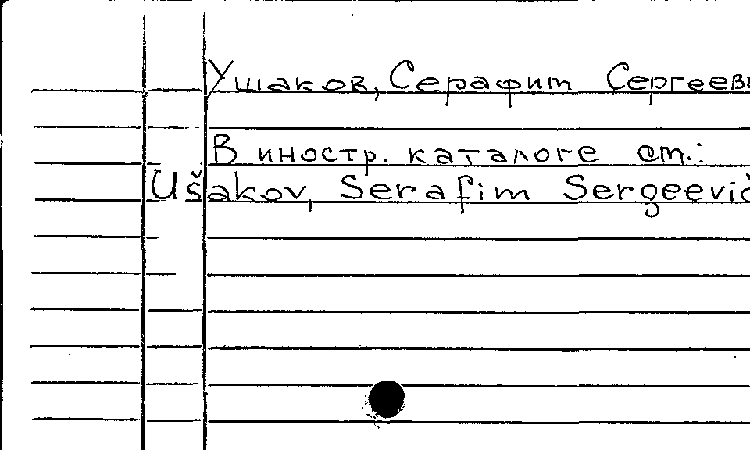 Ушаков, Серафим Сергееви
В иностр. каталоге см.:
Ušakov, Serafim Sergeevič